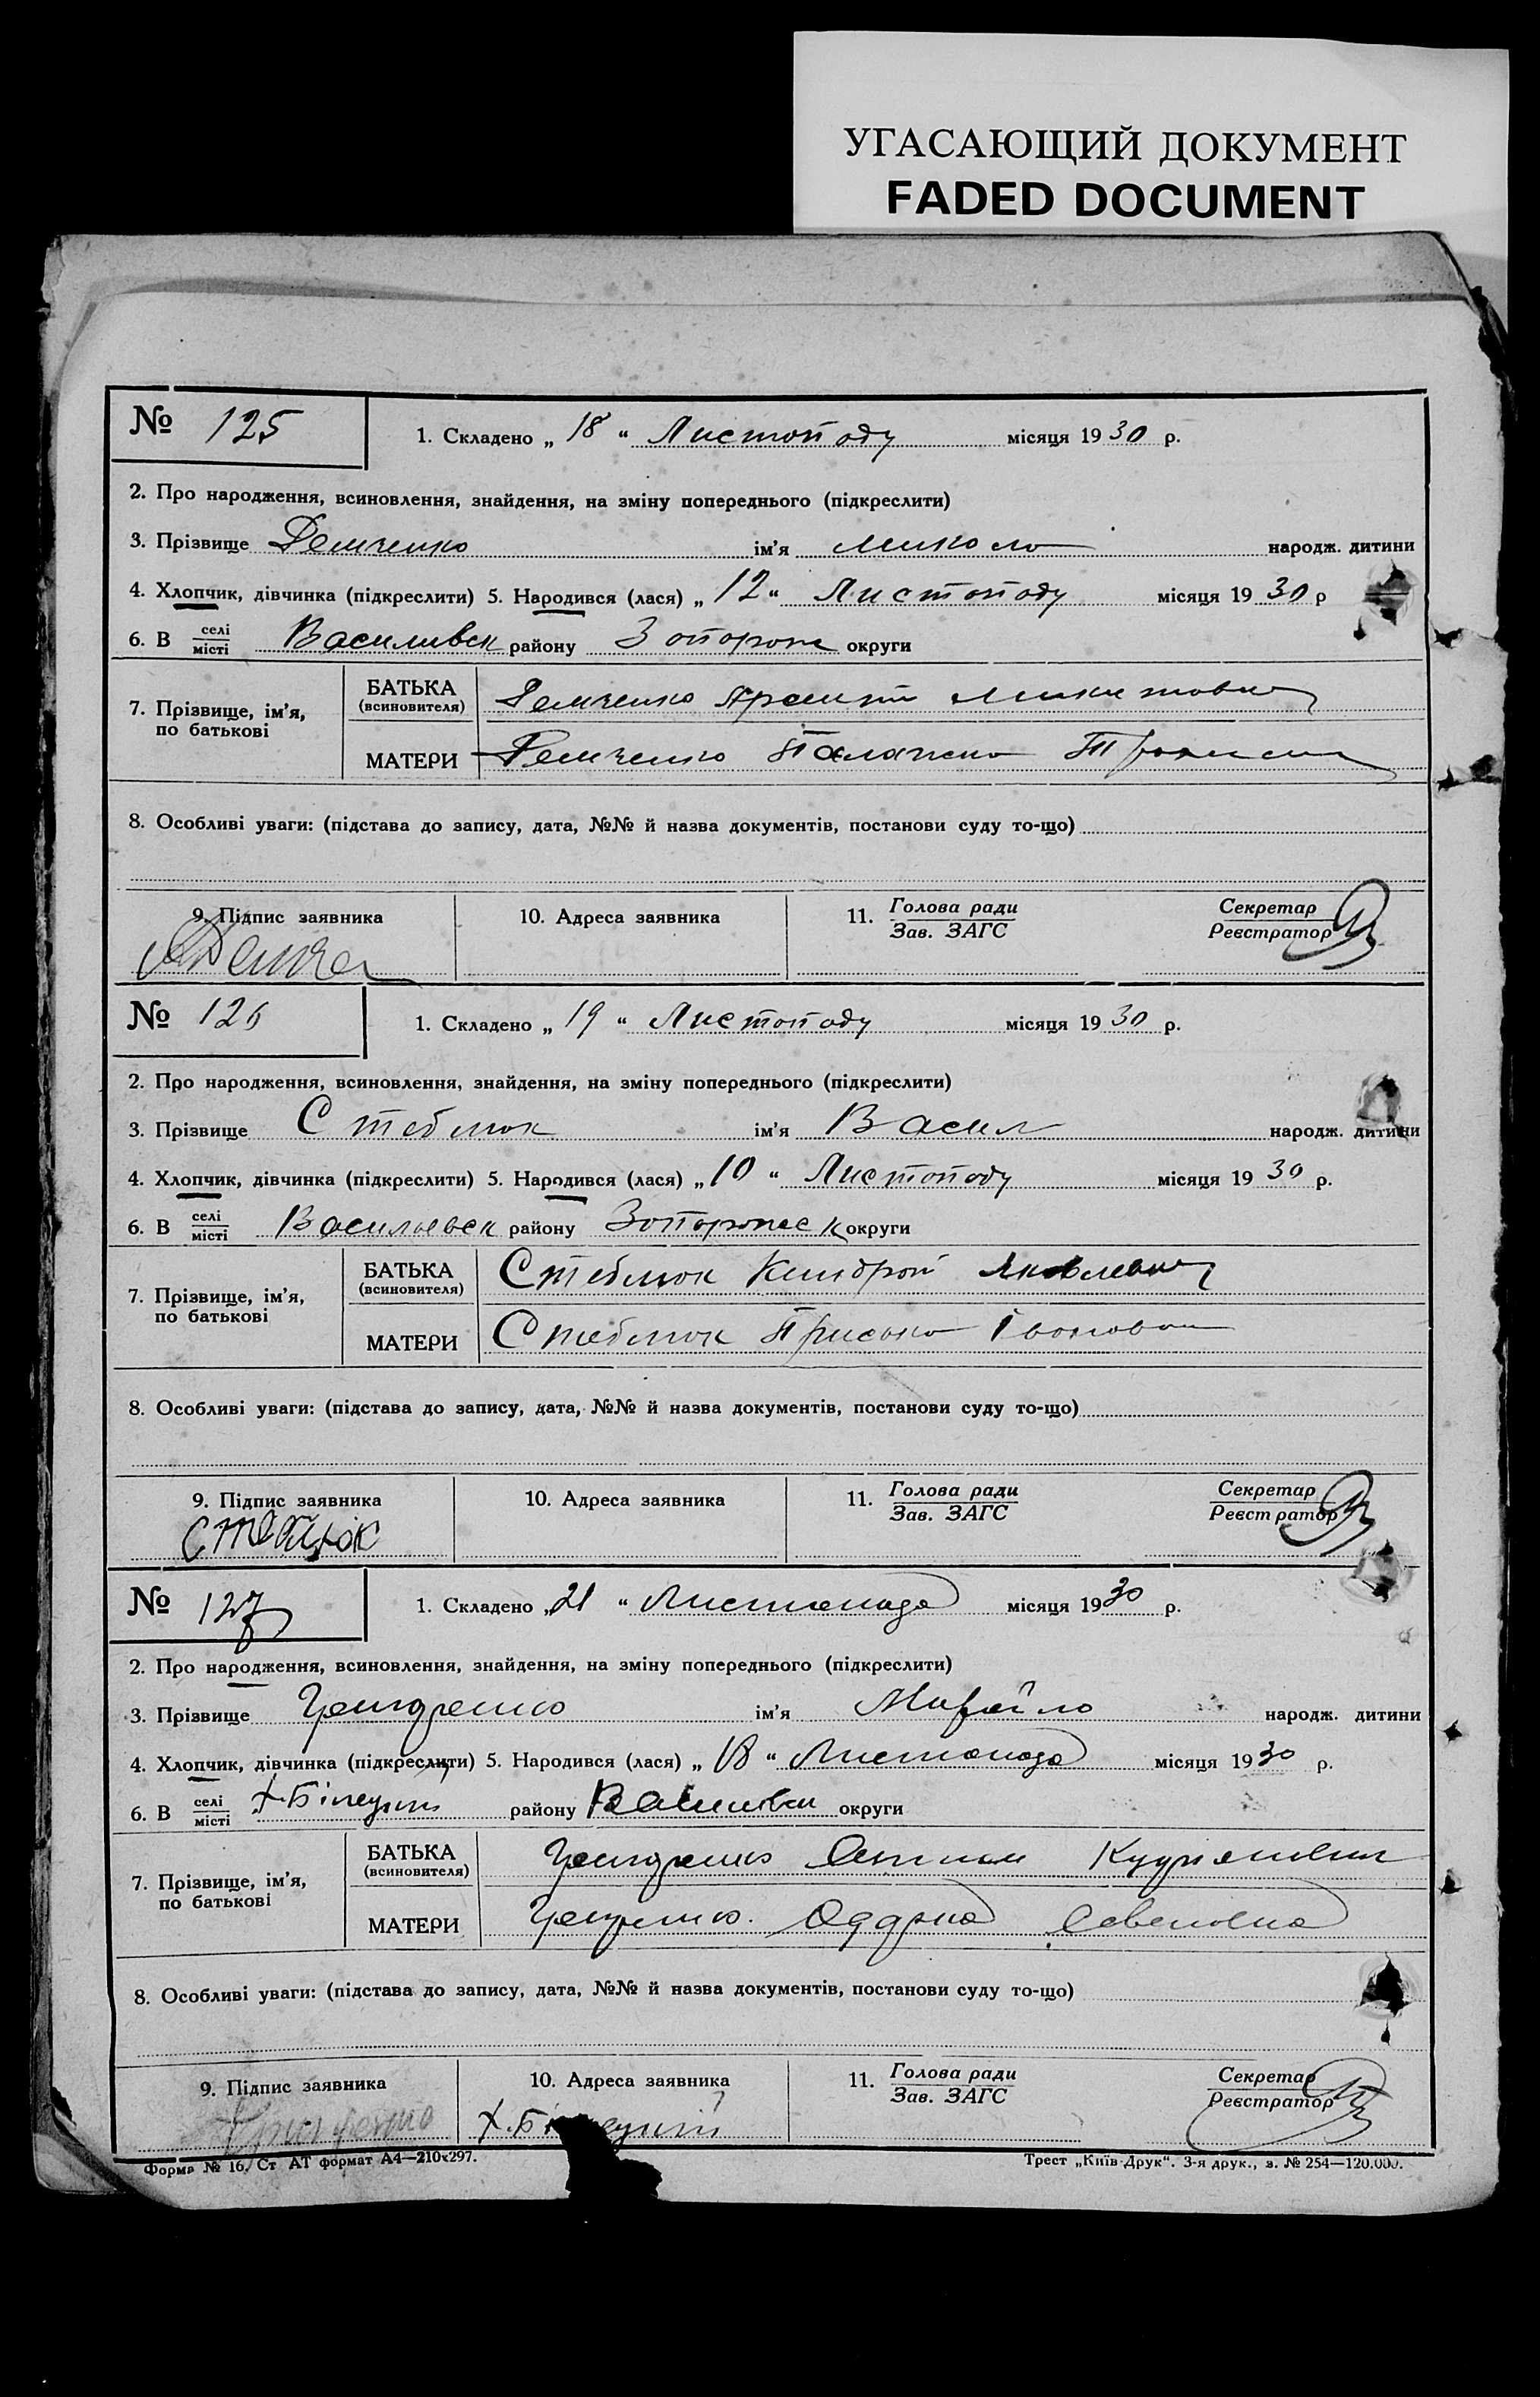 УГАСАЮЩИЙ ДОКУМЕНТ
FADED DOCUMENT
№ 125
1. Складено „ 18 “ Листопаду місяця 1930 р.
2. Про народження, всиновлення, знайдення, на зміну попереднього (підкреслити)
3. Прізвище Демченко ім'я Микола народж. дитини
4. Хлопчик, дівчинка (підкреслити) 5. Народився (лася) „ 12 “ Листопаду місяця 1930 р
6. В селі місті Василивск району Запорож округи
7. Прізвище, ім'я, по батькові
БАТЬКА (всиновителя) Демченко Микитович
МАТЕРИ Демченко Палажка
8. Особливі уваги: (підстава до запису, дата, №№ й назва документів, постанови суду то-що)
9. Підпис заявника 10. Адреса заявника 11. Голова ради Зав. ЗАГС Секретар Реєстратор
№ 126
1. Складено „ 19 “ Листопаду місяця 1930 р.
2. Про народження, всиновлення, знайдення, на зміну попереднього (підкреслити)
3. Прізвище Стеблюк ім'я Васил народж. дитини
4. Хлопчик, дівчинка (підкреслити) 5. Народився (лася) „ 10 “ Листопаду місяця 1930 р.
6. В селі місті Васильевск району Запорожск округи
7. Прізвище, ім'я, по батькові
БАТЬКА (всиновителя) Стеблюк Киндрат Яковлевич
МАТЕРИ Стеблюк Приська Івановна
8. Особливі уваги: (підстава до запису, дата, №№ й назва документів, постанови суду то-що)
9. Підпис заявника 10. Адреса заявника 11. Голова ради Зав. ЗАГС Секретар Реєстратор
Стеблюк
№ 127
1. Складено „ 21 “ Листопада місяця 1930 р.
2. Про народження, всиновлення, знайдення, на зміну попереднього (підкреслити)
3. Прізвище ім'я Михайло народж. дитини
4. Хлопчик, дівчинка (підкреслити) 5. Народився (лася) „ 18 “ Листопада місяця 1930 р.
6. В селі місті району Василивск округи
7. Прізвище, ім'я, по батькові
БАТЬКА (всиновителя)
МАТЕРИ Оддрка Савеловна
8. Особливі уваги: (підстава до запису, дата, №№ й назва документів, постанови суду то-що)
9. Підпис заявника 10. Адреса заявника 11. Голова ради Зав. ЗАГС Секретар Реєстратор
Форма № 16. Ст АТ формат А4—210х297.
Трест „Київ-Друк“. 3-я друк., з. № 254—120.000.